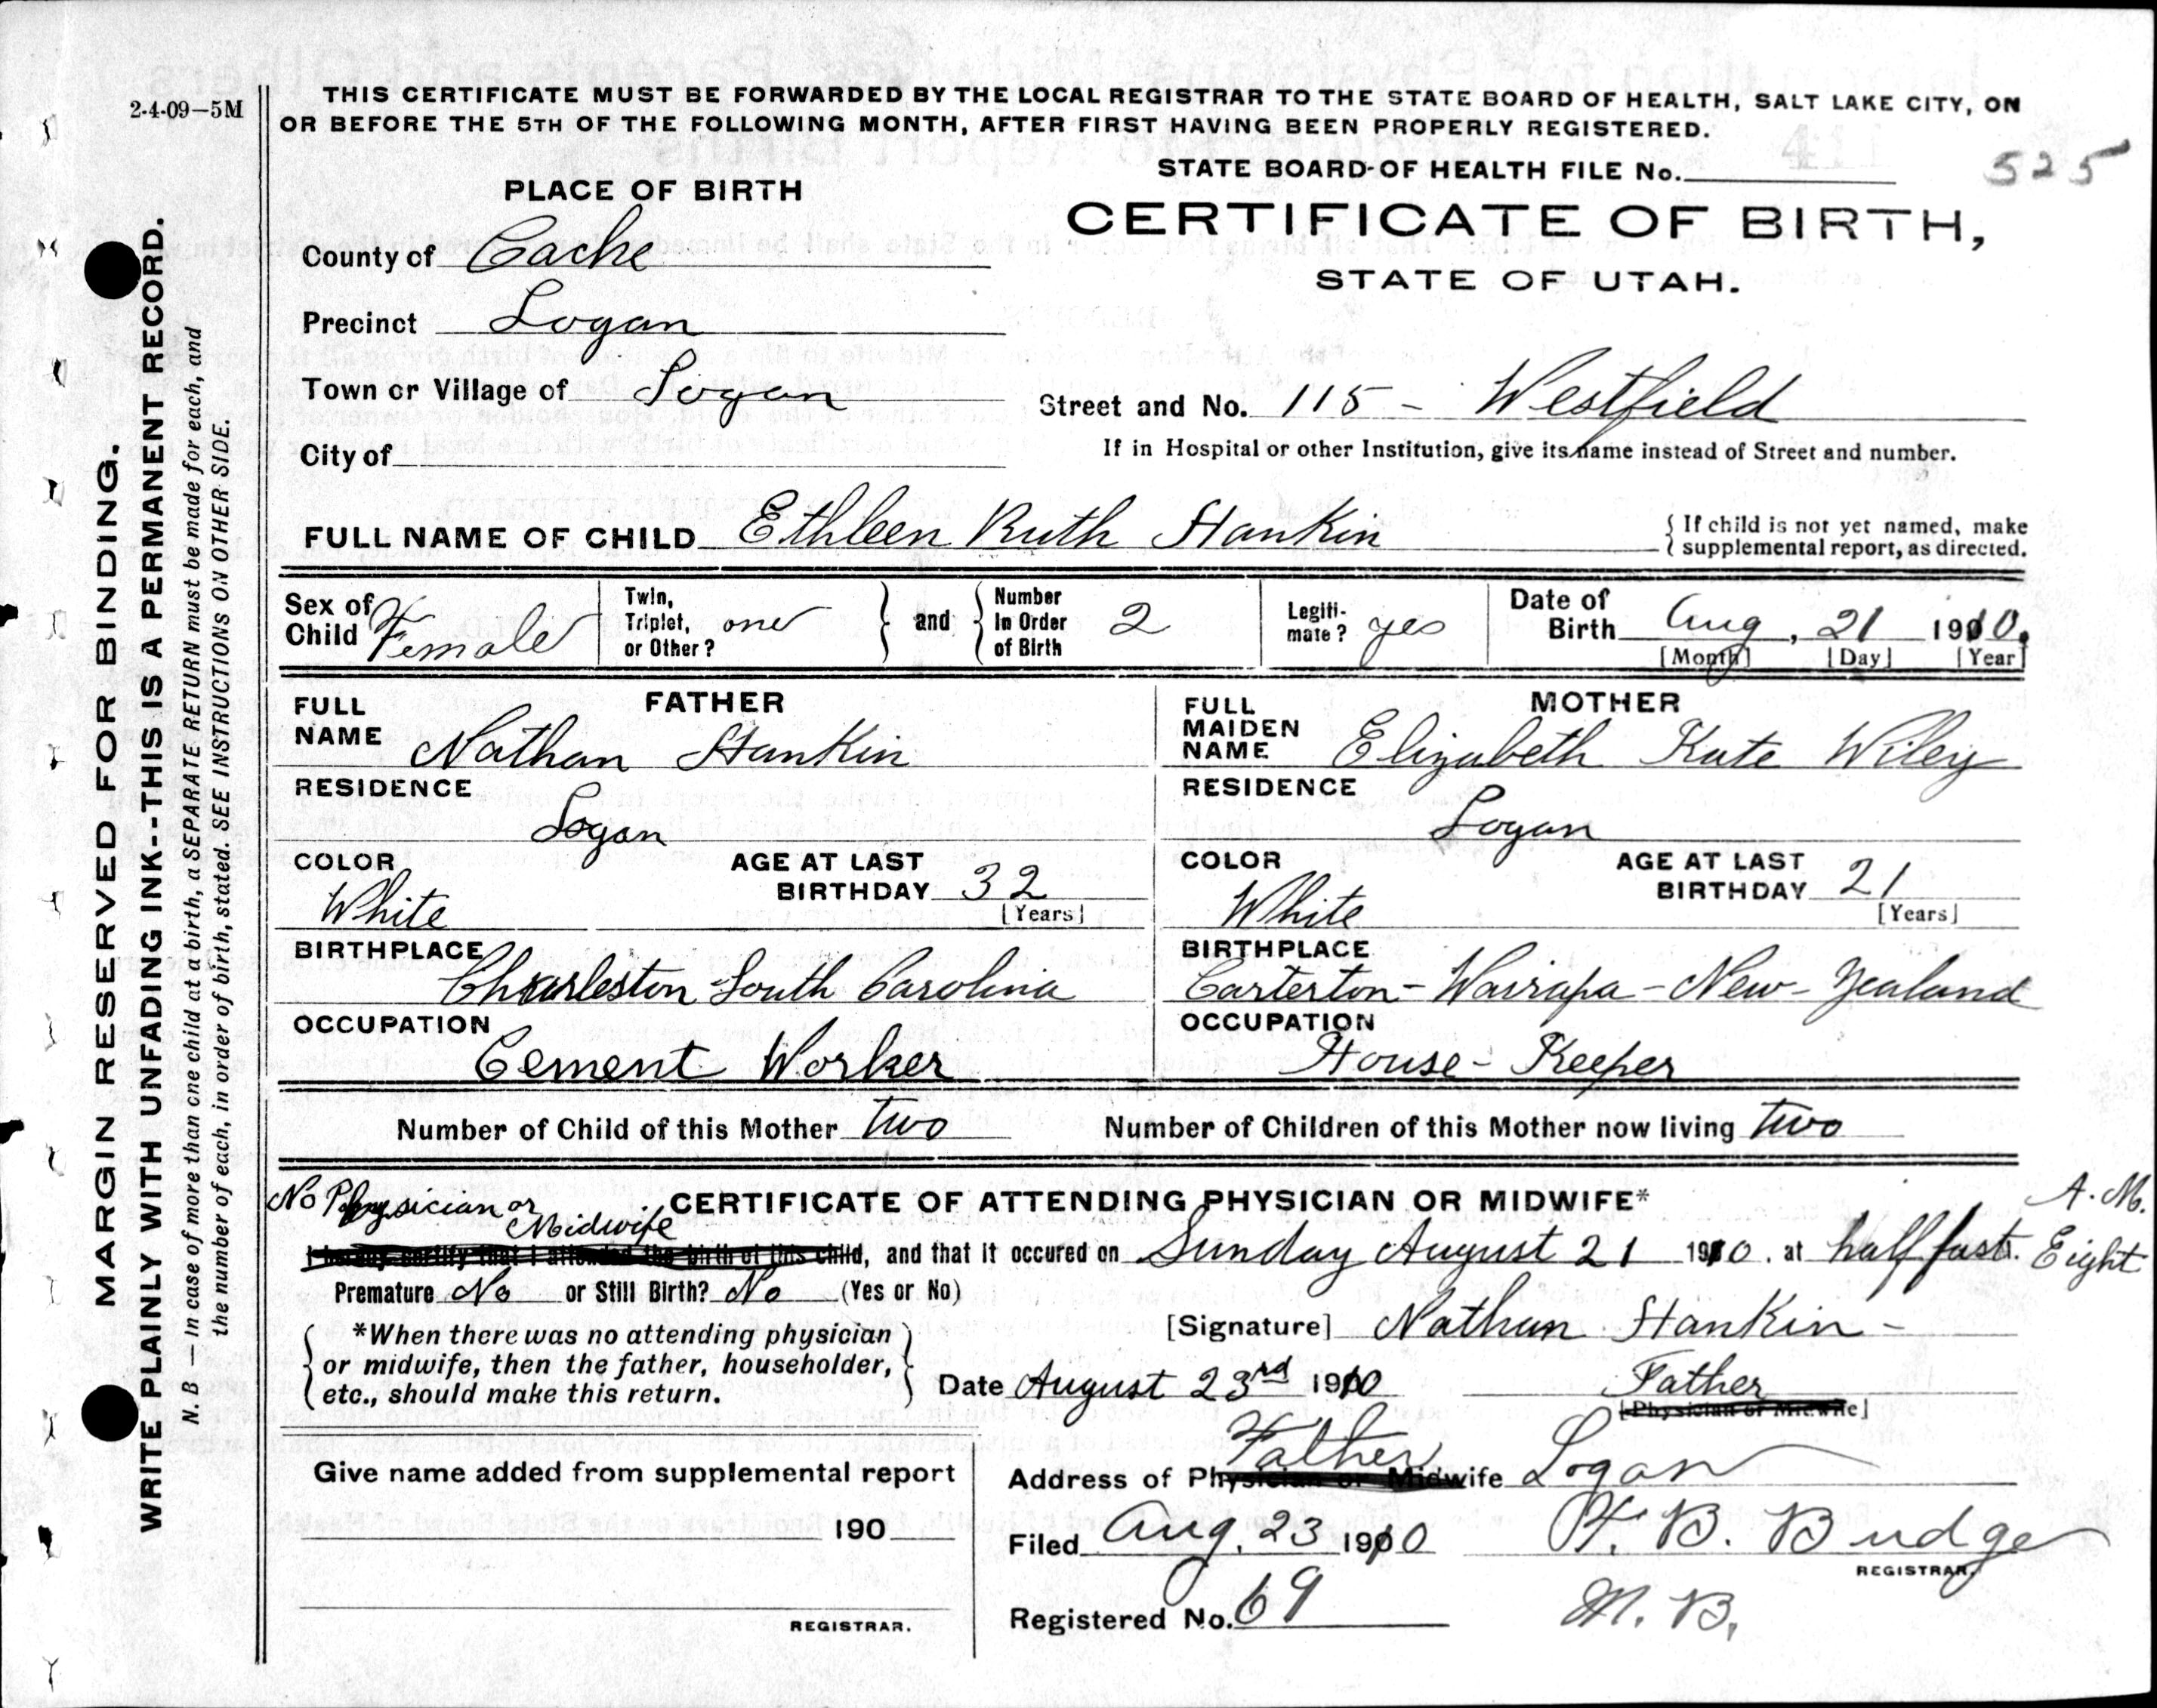 2-4-09—5M
THIS CERTIFICATE MUST BE FORWARDED BY THE LOCAL REGISTRAR TO THE STATE BOARD OF HEALTH, SALT LAKE CITY, ON
OR BEFORE THE 5TH OF THE FOLLOWING MONTH, AFTER FIRST HAVING BEEN PROPERLY REGISTERED.
STATE BOARD OF HEALTH FILE No. 525
PLACE OF BIRTH
CERTIFICATE OF BIRTH,
STATE OF UTAH.
County of Cache
Precinct Logan
Town or Village of Logan
Street and No. 115 - Westfield
City of
If in Hospital or other Institution, give its name instead of Street and number.
FULL NAME OF CHILD Ethleen Ruth Hankin
{ If child is not yet named, make
supplemental report, as directed.
Sex of Child Female
Twin, Triplet, or Other? one
and
Number In Order of Birth 2
Legiti-mate? yes
Date of Birth Aug, 21 1910.
[Month] [Day] [Year]
FATHER
FULL NAME Nathan Hankin
RESIDENCE
Logan
COLOR
White
AGE AT LAST BIRTHDAY 32
[Years]
BIRTHPLACE
Charleston South Carolina
OCCUPATION
Cement Worker
MOTHER
FULL MAIDEN NAME Elizabeth Kate Wiley
RESIDENCE
Logan
COLOR
White
AGE AT LAST BIRTHDAY 21
[Years]
BIRTHPLACE
Carterton - Wairapa - New - Zealand
OCCUPATION
House - Keeper
Number of Child of this Mother two
Number of Children of this Mother now living two
CERTIFICATE OF ATTENDING PHYSICIAN OR MIDWIFE*
No Physician or
Midwife
I hereby certify that I attended the birth of this child, and that it occured on Sunday August 21 1910. at half past Eight A.M.
Premature No or Still Birth? No (Yes or No)
*When there was no attending physician
or midwife, then the father, householder,
etc., should make this return.
[Signature] Nathan Hankin -
Date August 23rd 1910
Father
[Physician or Midwife]
Father
Address of Physician or Midwife Logan
Give name added from supplemental report
190
REGISTRAR.
Filed Aug. 23 1910
T. B. Budge
REGISTRAR.
Registered No. 69
M. B.
MARGIN RESERVED FOR BINDING.
WRITE PLAINLY WITH UNFADING INK--THIS IS A PERMANENT RECORD.
N. B.—In case of more than one child at a birth, a SEPARATE RETURN must be made for each, and
the number of each, in order of birth, stated. SEE INSTRUCTIONS ON OTHER SIDE.